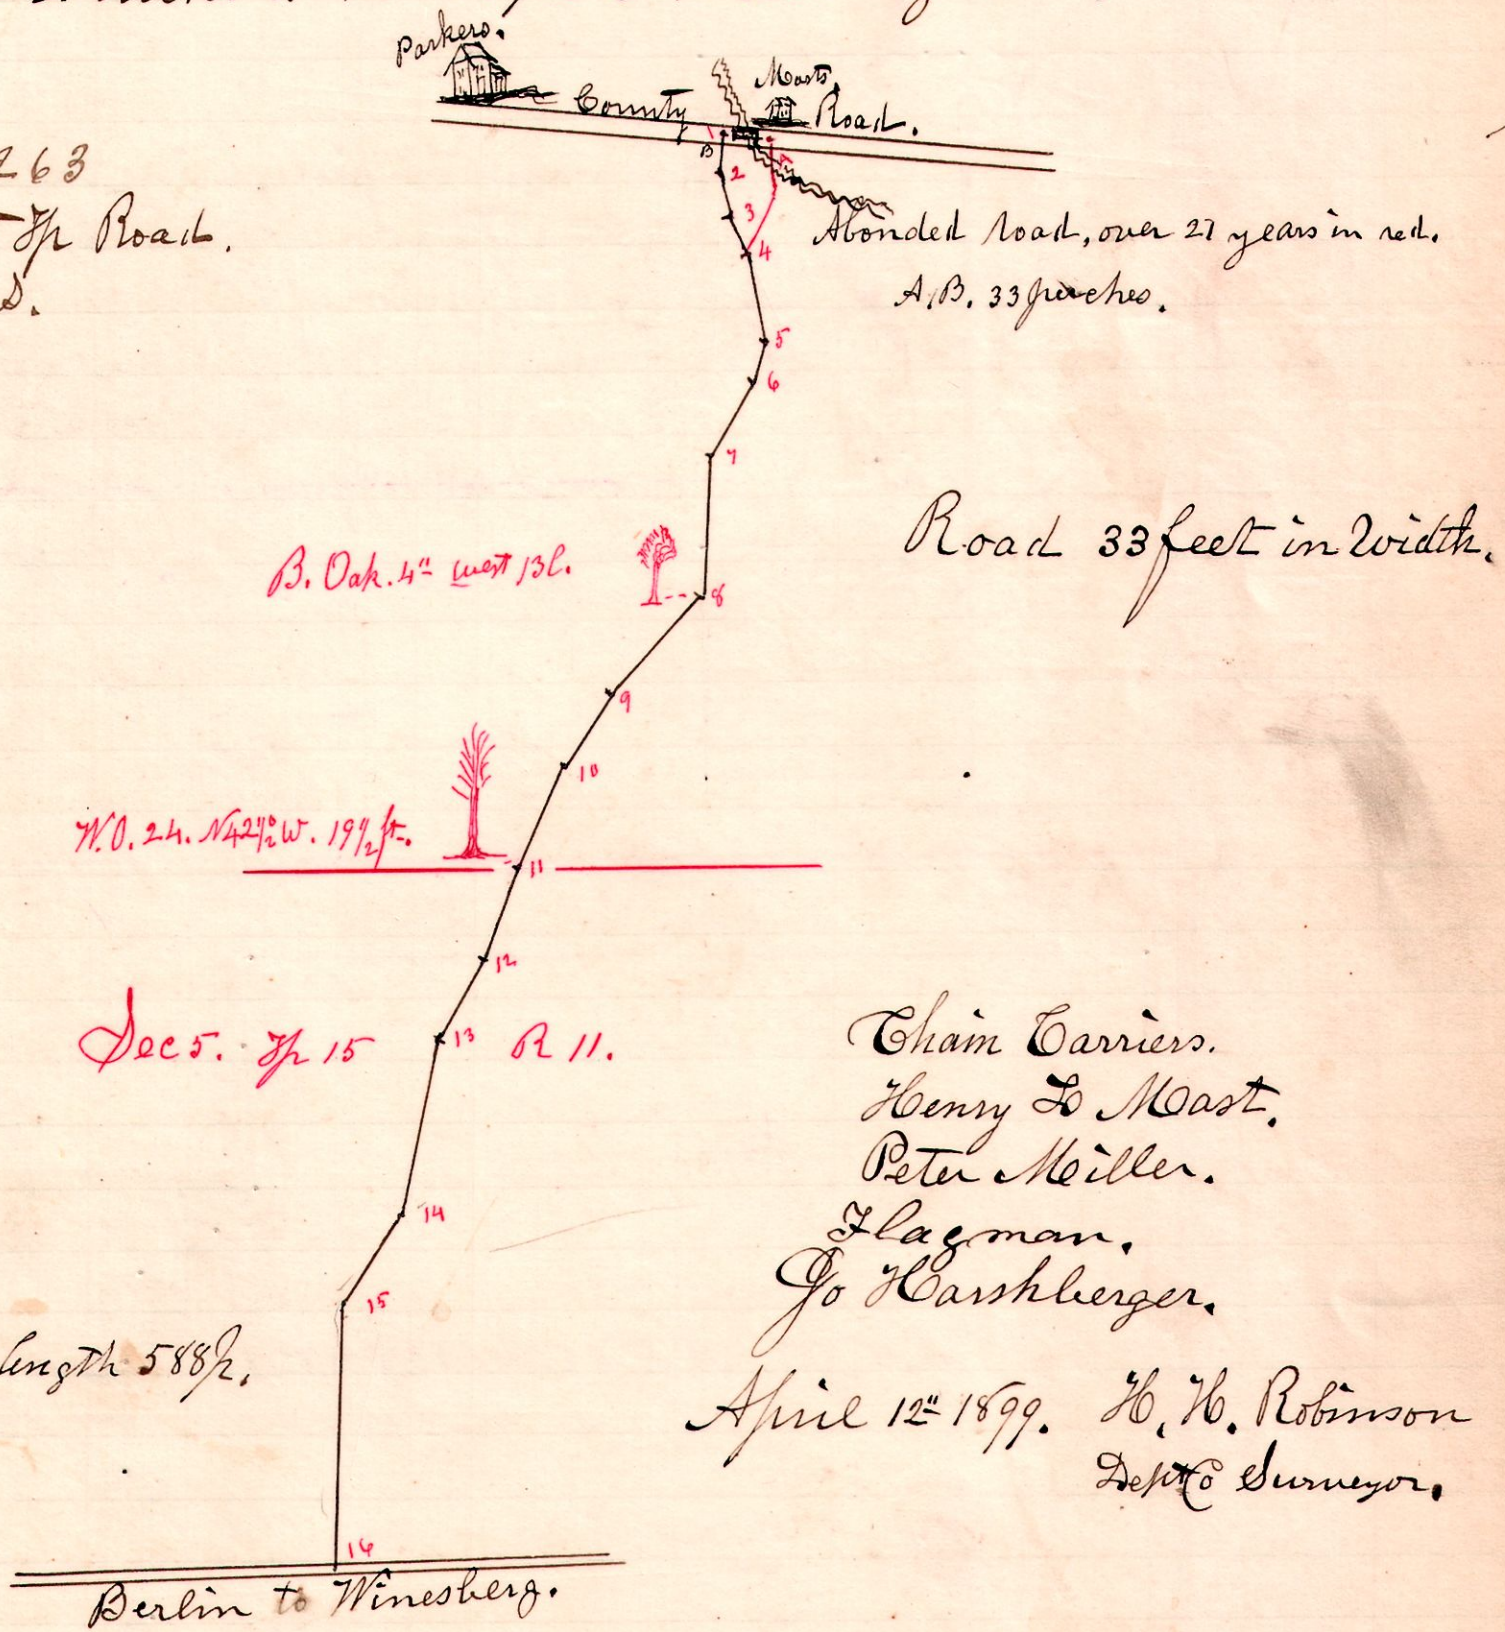 Parkers.
Masts.
County Road.
263
Tp Road.
S.
1
B
A
2
3
4
Abonded road, over 21 years in red.
A.B. 33 perches.
5
6
7
Road 33 feet in Width.
B. Oak. 4" west 13 l.
8
9
10
W.O. 24. N42½°W. 19½ ft.
11
12
Sec 5. Tp 15
13
R 11.
Chain Carriers.
Henry D Mast.
Peter Miller.
14
Flagman.
Jo Harshberger.
15
length 588 p.
April 12" 1899. H. H. Robinson
Dept Co Surveyor.
16
Berlin to Winesberg.